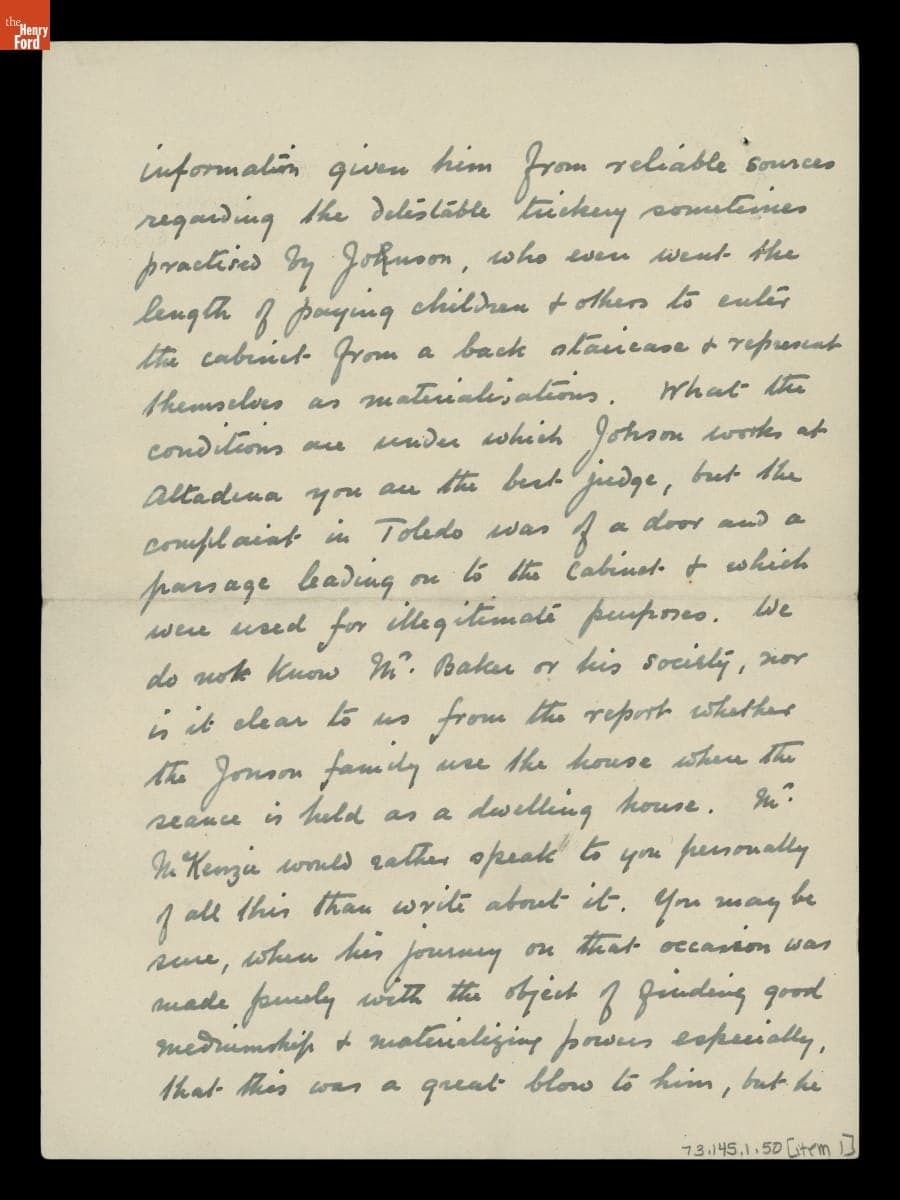 the
Henry
Ford
information given him from reliable sources
regarding the detestable trickery sometimes
practised by Johnson, who even went the
length of paying children & others to enter
the cabinet from a back staircase & represent
themselves as materialisations. What the
conditions are under which Johson works at
Altadena you are the best judge, but the
complaint in Toledo was of a door and a
passage leading on to the cabinet & which
were used for illegitimate purposes. We
do not know Mr. Baker or his society, nor
is it clear to us from the report whether
the Jonson family use the house where the
seance is held as a dwelling house. Mr.
McKenzie would rather speak to you personally
of all this than write about it. You may be
sure, when his journey on that occasion was
made purely with the object of finding good
mediumship & materializing powers especially,
that this was a great blow to him, but he
73.145.1.50 [item 1]